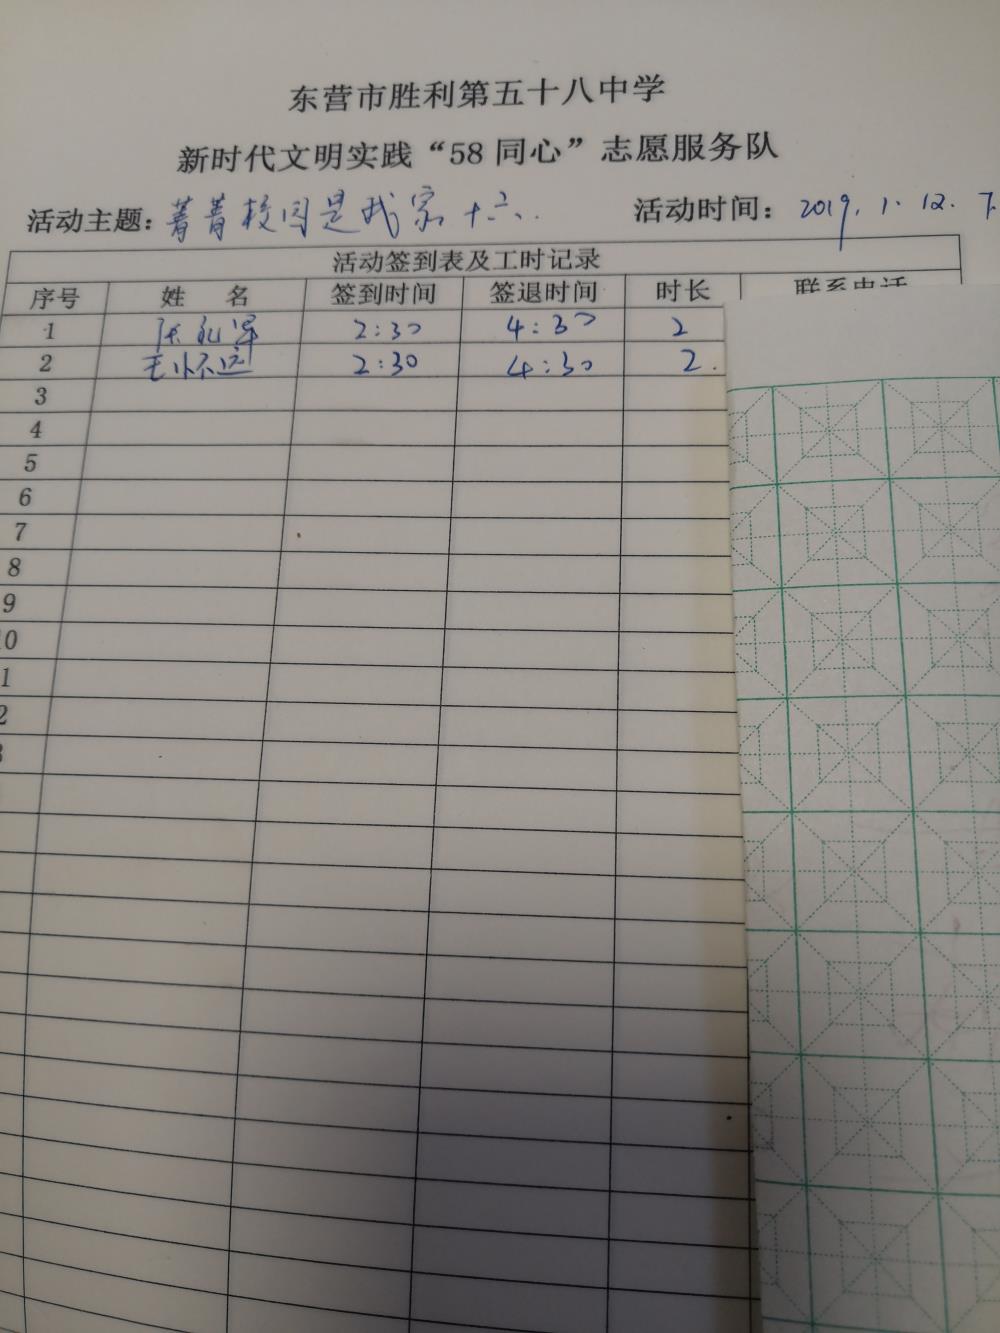 东营市胜利第五十八中学
新时代文明实践“58同心”志愿服务队
活动主题：菁菁校园是我家十六 活动时间：2019.1.12.
活动签到表及工时记录
序号 姓 名 签到时间 签退时间 时长 联系电话
1 2:30 4:30 2
2 2:30 4:30 2.
3
4
5
6
7
8
9
10